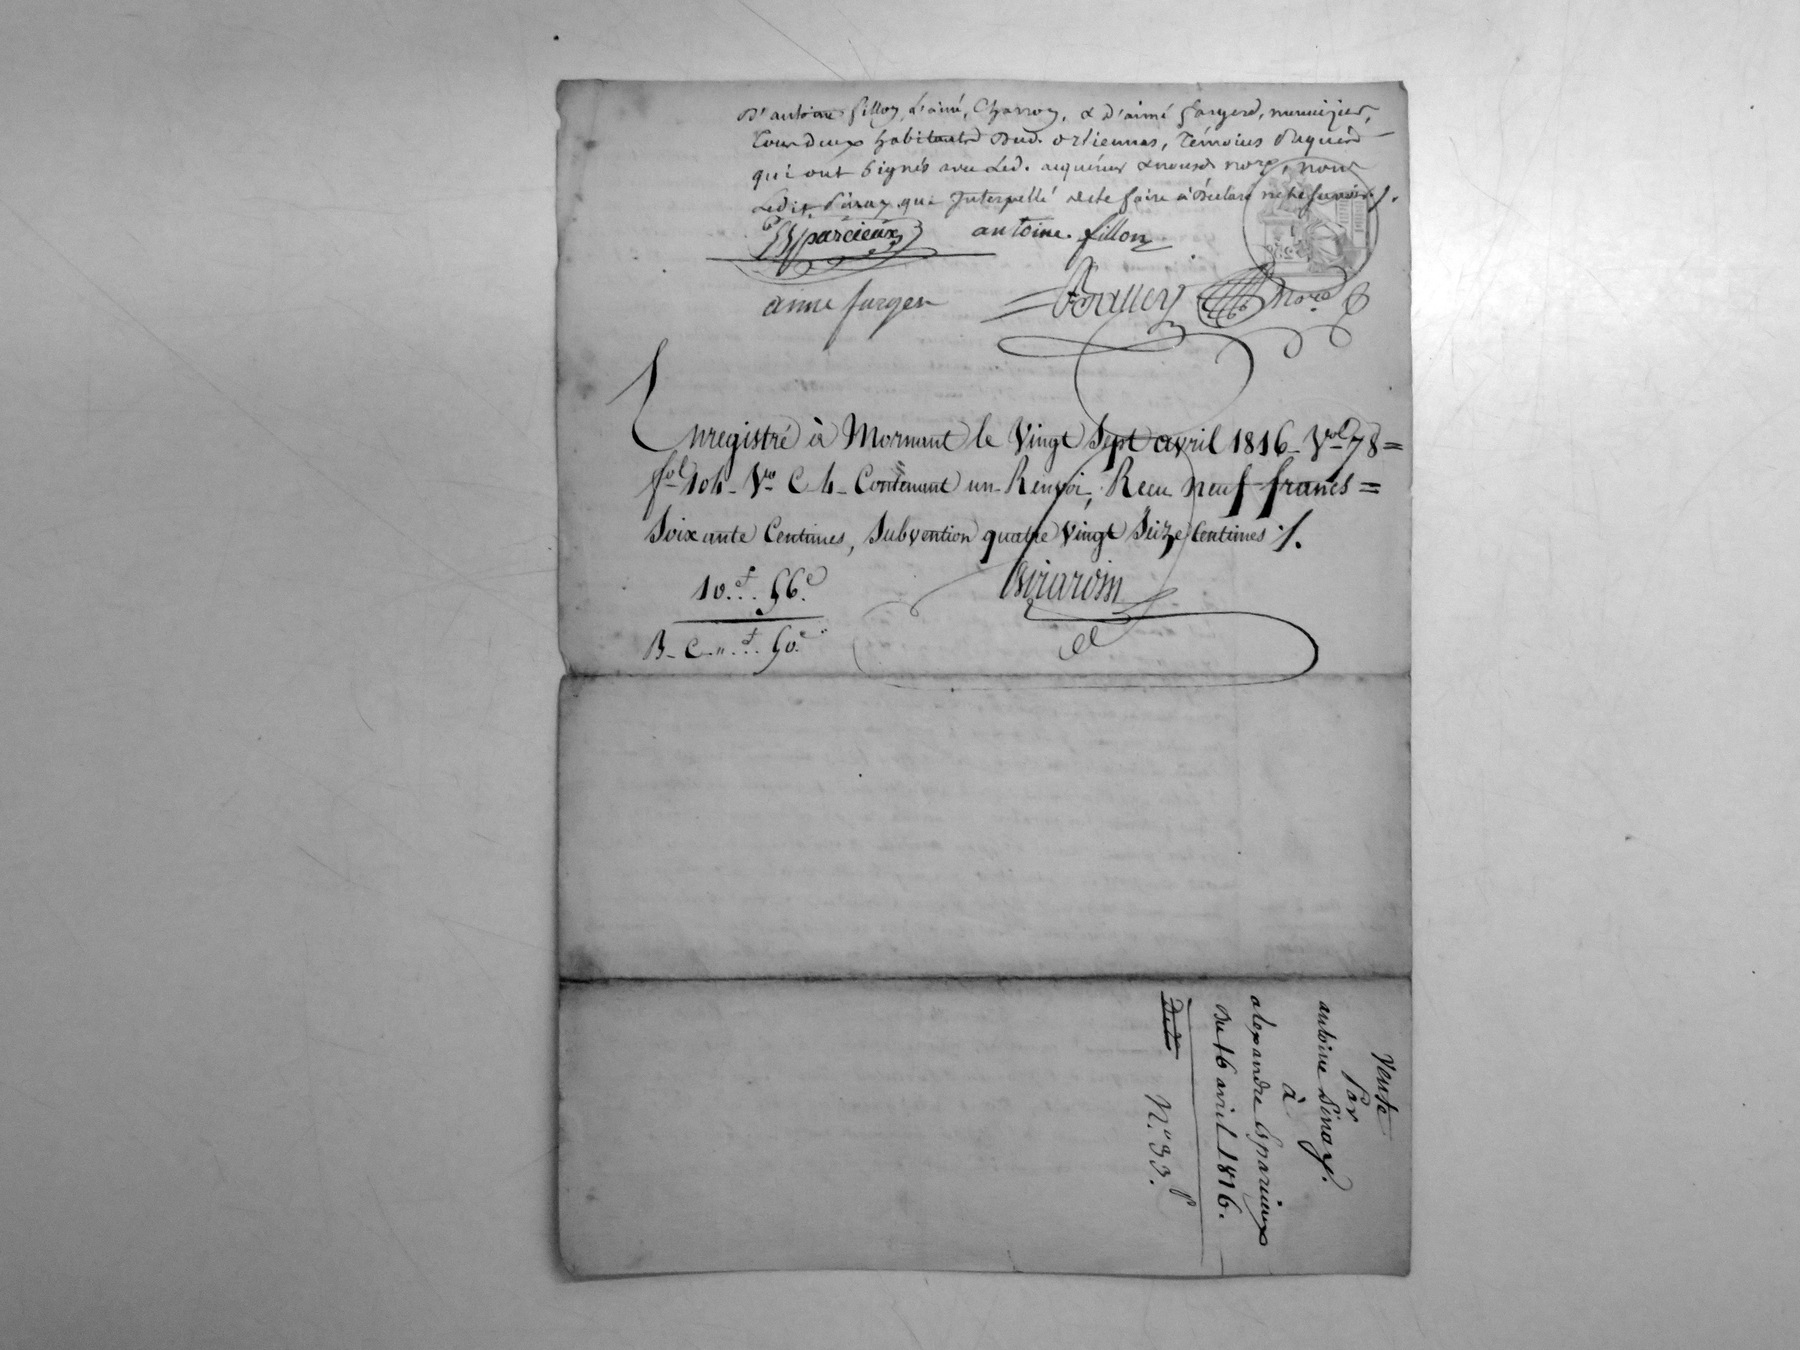 D'antoine fillon, L'ainé, Charron, & D'aimé fargere, menuisier,
tous deux habitants Dud. orliennas, témoins Requis
qui ont signés avec Led. acquéreur & nousd. nore, non
Ledit Pinay qui Interpellé de le faire a Déclaré ne le savoir ./.
Esparcieux antoine fillon
aimé farger nore
Enregistré à Mornant le Vingt Sept avril 1816 - Vol. 78 =
fol. 104 - Vo. C 4 - Contenant un Renvoi, Recu neuf francs =
Soixante Centimes, Subvention quatre Vingt Seize Centimes ./.
10.f. 56.c
B - C. " .f. 50.c
Girardin
Vente
Par
antoine Pinay.
à
alexandre Esparcieux
Du 16 avril 1816.
N.o 33.